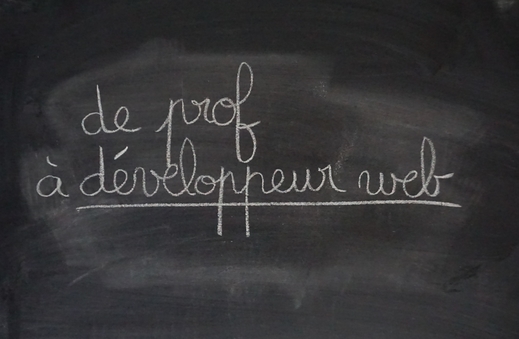 de prof
à développeur web